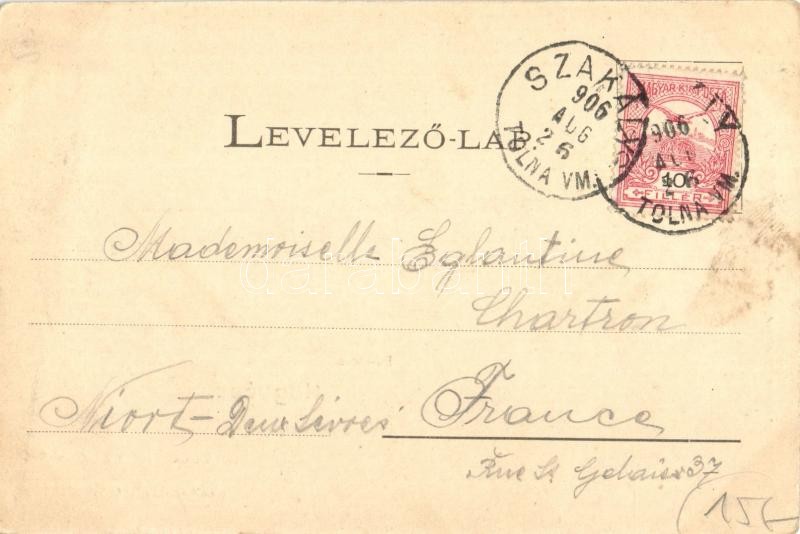 LEVELEZŐ-LAP.
SZAKÁLY
906
AUG
26
TOLNA VM.
MAGYAR KIR POSTA
906
AUG
26
TOLNA VM.
10
FILLÉR
Mademoiselle Eglantine
Chartron
Niort - Deux Sèvres France
Rue St Gelais 37
darabanth
156